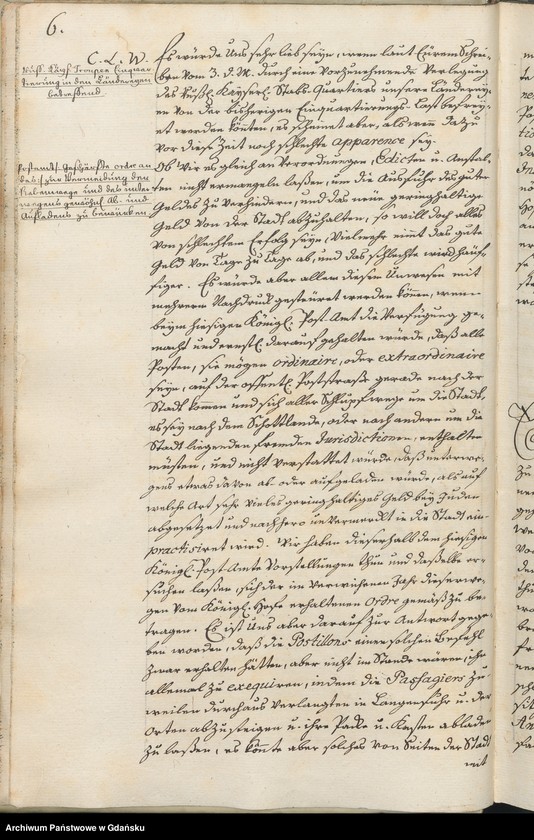 6.
C. L. W.
Russ. Kays. Trouppen Einquar
tierung in den Länderegen
betreffend
Postamts geschärfte ordre an
des: zur Vermeidung der
Nebenwege und des unter
weegens Ab- und
Aufladens zu
Es würde Uns sehr lieb seyn, wenn laut Eurem Schrei-
ben vom 3. d. M. durch eine vorzunehmende Verlegung
des Russ. Kayserl. Stabs-Quartiers unsere Länderey-
en von der bisherigen Einquartierungs-Last befrey-
et werden könten, es scheinet aber, als wenn dazu
vor dieser Zeit noch schlechte apparence sey.
Ob Wir es gleich an Verordnungen, Edicten u. Anstal-
ten nicht ermangeln laßen, um die Ausfuhr des guten
Geldes zu verhindern, und das neue geringhaltige
Geld von der Stadt abzuhalten, so will doch alles
von schlechten Erfolg seyn, Vielmehr nimt das gute
Geld von Tage zu Tage ab, und das schlechte wird häuf-
figer. Es würde aber allem diesem Unwesen mit
mehrerm Nachdruck gesteüret werden können, wenn
beym hiesigen Königl. Post-Amt die Verfügung ge-
macht und ernstl. darauf gehalten würde, daß alle
Posten, sie mögen ordinaire, oder extraordinaire
seyn, auf der öffentl. Poststraße gerade nach der
Stadt kämen und sich aller Schlupfwege um die Stadt,
es sey nach dem Schottlande, oder nach andern um die
Stadt liegenden fremden Jurisdictionen, enthalten
müsten, und nicht verstattet würde, daß unterwe-
gens etwas davon ab- oder aufgeladen würde, als auf
welche Art sehr vieles geringhaltiges Geld bey Juden
abgesetzet und nachhero unvermerckt in die Stadt ein-
practisiret wird. Wir haben dieserhalb dem hiesigen
Königl. Post-Amte Vorstellungen thun und daßelbe er-
suchen laßen, sich der im verwichenen Jahr dieserwe-
gen vom Königl. Hofe erhaltenen Ordre gemäß zu be-
tragen. Es ist Uns aber darauf zur Antwort gege-
ben worden, daß die Postillons einen solchen Befehl
zwar erhalten hätten, aber nicht im Stande wären, ihn
allemal zu exequiren, indem die Passagiers zu-
weilen durchaus verlangten in Langenfuhr u. dergl.
Orten abzusteigen u. ihre Packe u. Kasten abladen
zu laßen, es könte aber solches von Seiten der Stadt
mit
Archiwum Państwowe w Gdańsku